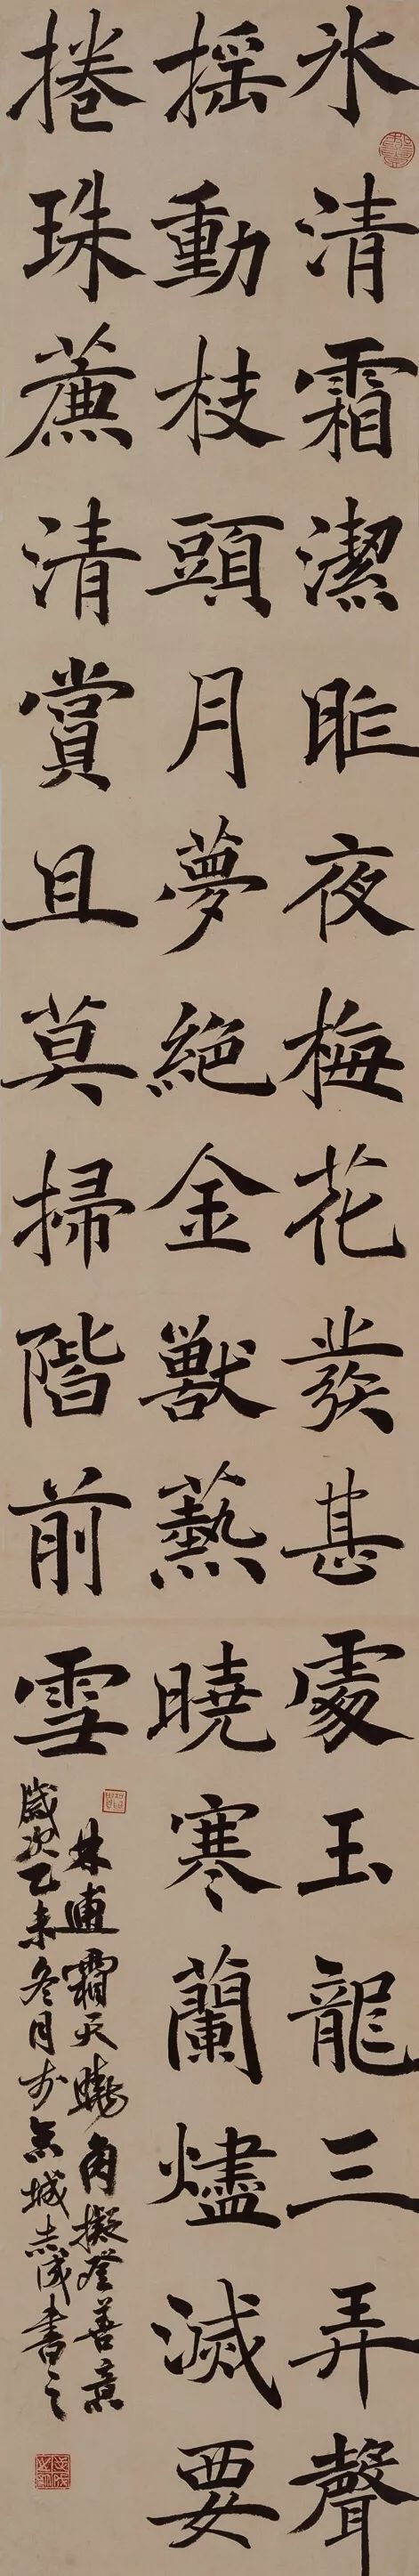 氷清霜潔昨夜梅花發甚處玉龍三弄聲
搖動枝頭月夢絕金獸爇曉寒蘭燼滅要
捲珠薕清賞且莫掃階前雪
林逋霜天曉角擬登善意
歲次乙未冬月於城志成書之